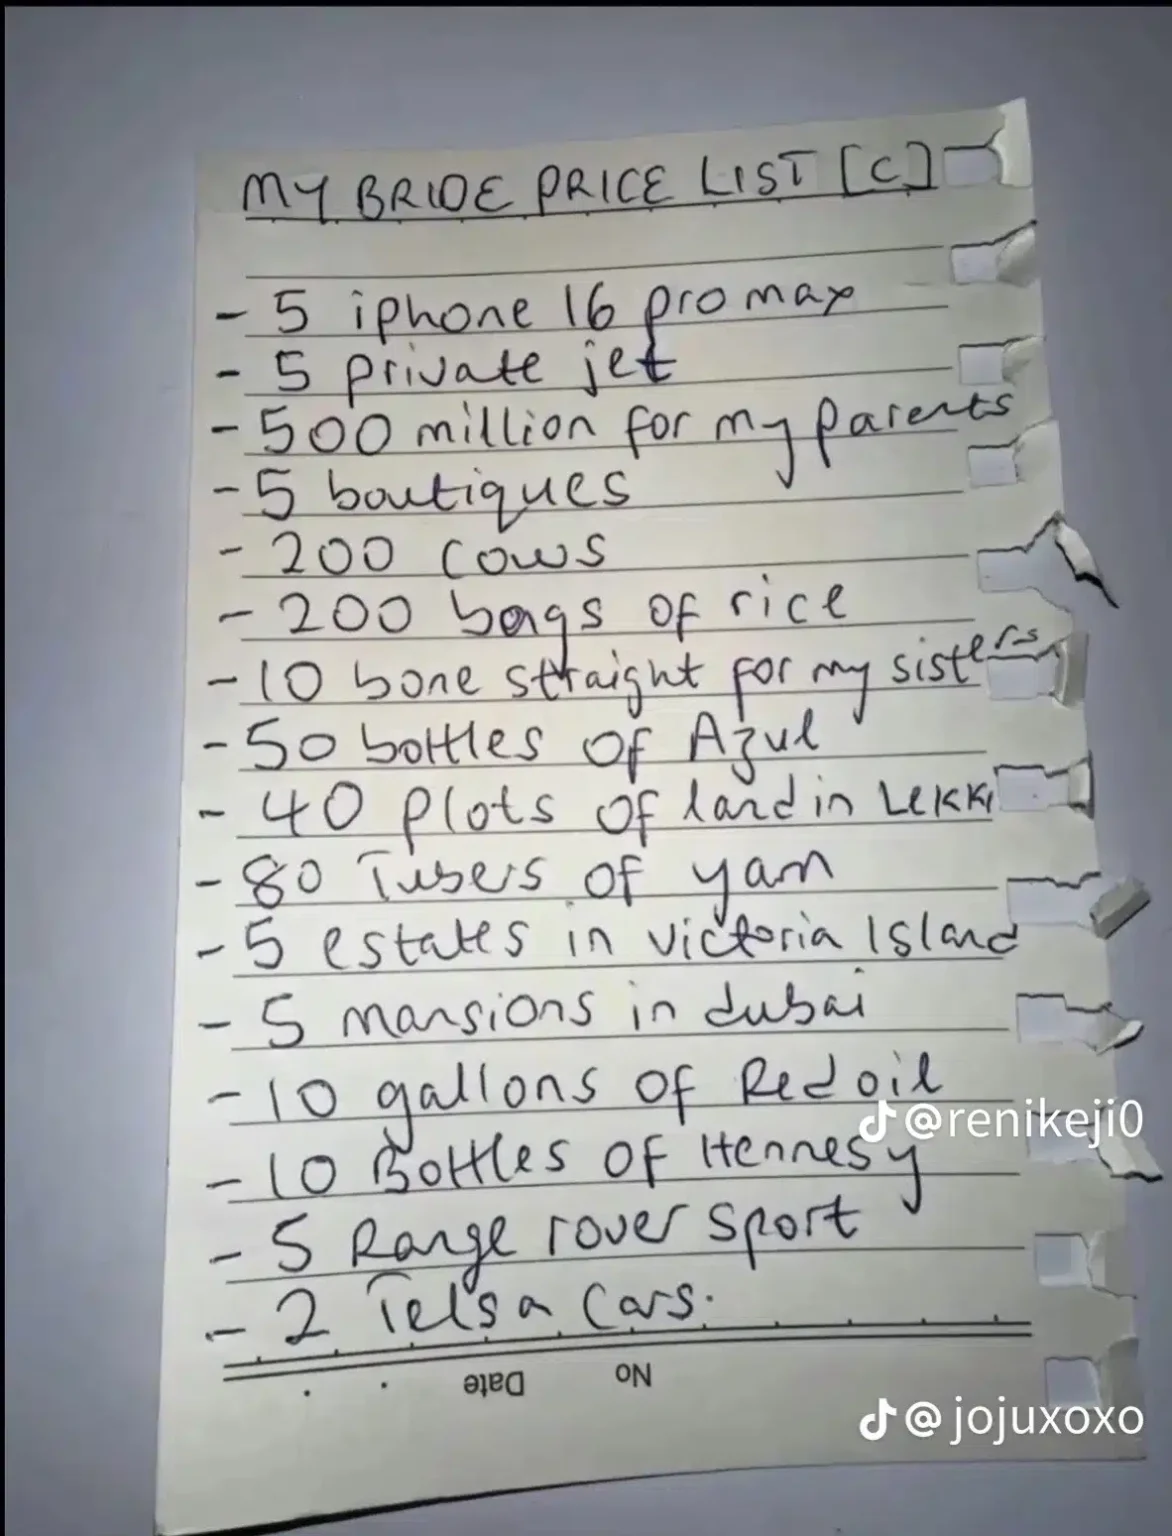 MY BRIDE PRICE LIST [C]
- 5 iphone 16 pro max
- 5 private jet
- 500 million for my parents
- 5 boutiques
- 200 cows
- 200 bags of rice
- 10 bone straight for my sisters
- 50 bottles of Azul
- 40 plots of land in Lekki
- 80 Tubers of yam
- 5 estates in victoria Island
- 5 mansions in dubai
- 10 gallons of Red oil
@renikeji0
- 10 Bottles of Hennesy
- 5 Range rover sport
- 2 Telsa Cars.
No
Date
@jojuxoxo